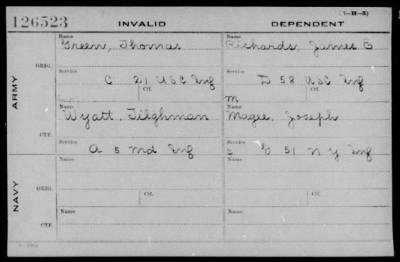 126523 INVALID DEPENDENT
Name Name
Green, Thomas Richards, James B
ORIG. Service Service
C 21 USC Inf D 58 USC Inf
ARMY
Ctf. Ctf.
M
Wyatt, Tilghman Magee, Joseph
CTF. Service Service
A 5 Md Inf G 51 N Y Inf
Name Name
NAVY ORIG.
Ctf. Ctf.
Name Name
CTF.